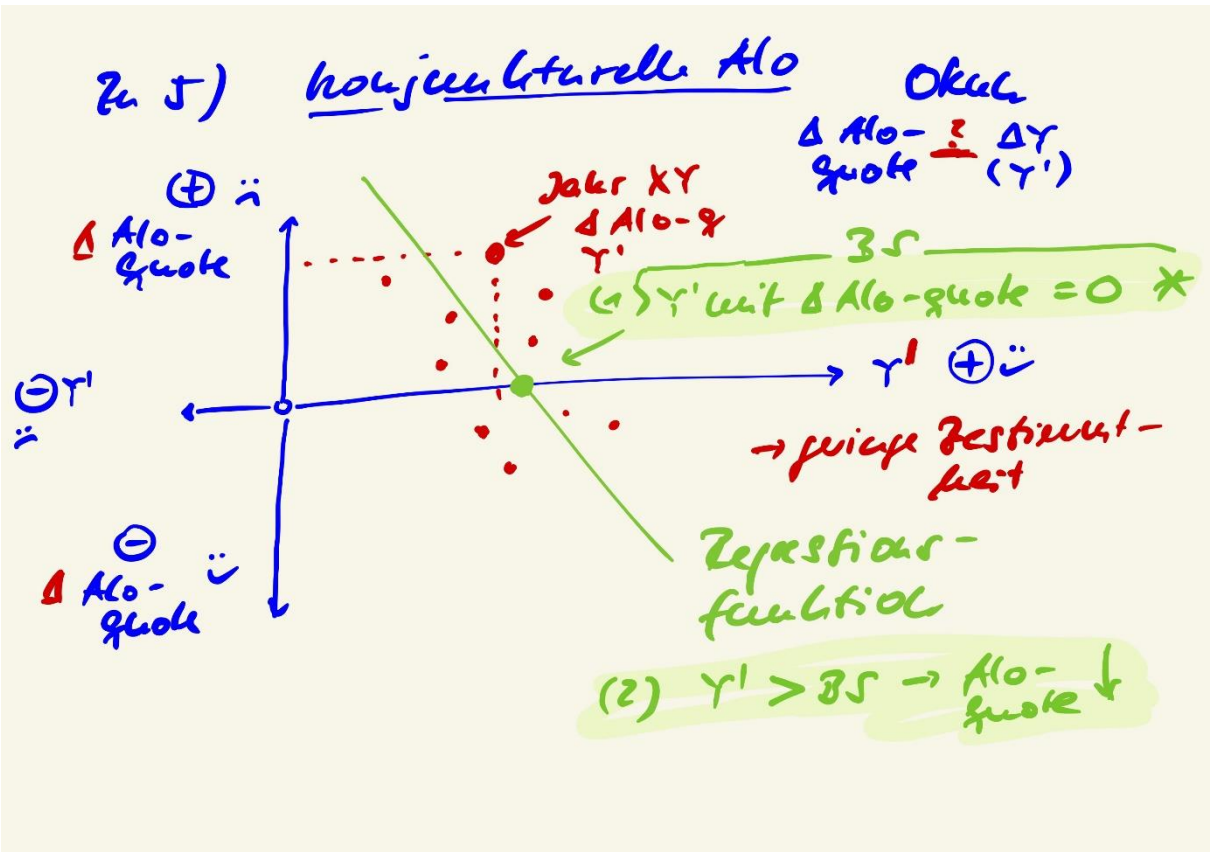 Zu 5) konjunkturelle Alo
Okun
Δ Alo-quote ? ΔY
(Y')
⊕
Δ Alo-
quote
Jahr XY
Δ Alo-q
Y'
BS
(1) Y' mit Δ Alo-quote = 0 *
⊖ Y'
Y' ⊕
→ geringe Bestimmt-
heit
⊖
Δ Alo-
quote
Regressions-
funktion
(2) Y' > BS → Alo-
quote ↓